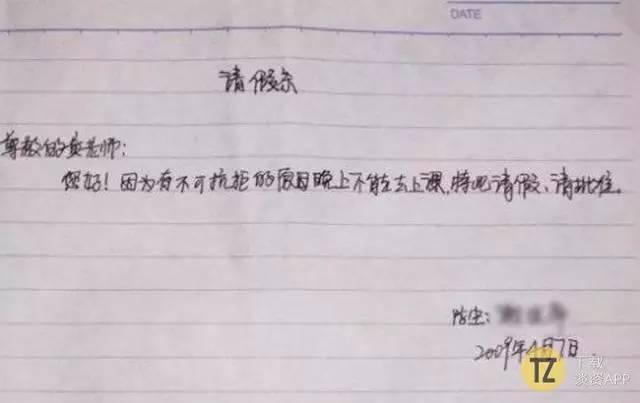 DATE
请假条
尊敬的黄老师:
您好!因为有不可抗拒的原因晚上不能去上课,特此请假、请批准。
学生:
2009年4月7日.
TZ
下载
淡资APP